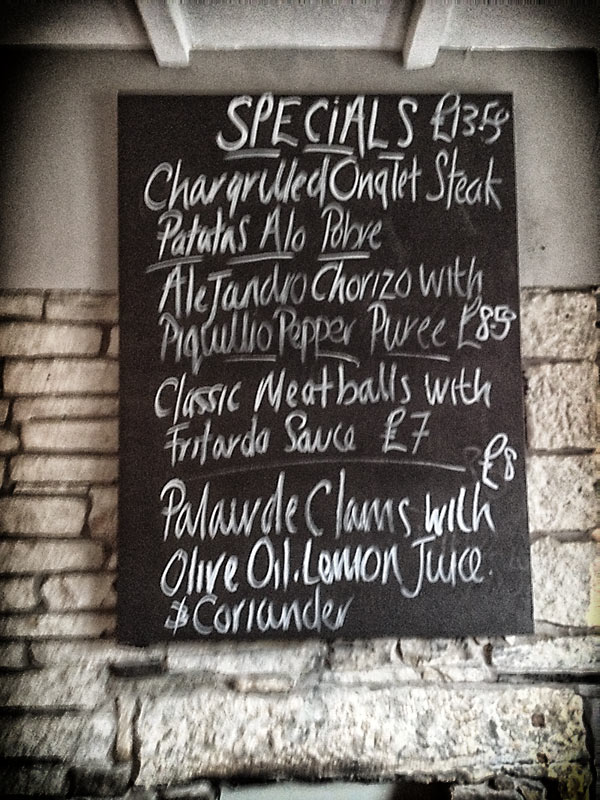 SPECIALS £13.50
Chargrilled Onglet Steak
Patatas Alo Pobre
Alejandro Chorizo with
Piquillio Pepper Puree £8.50
Classic Meatballs with
Fritarda Sauce £7
£8
Palaurde Clams with
Olive Oil. Lemon Juice.
& Coriander